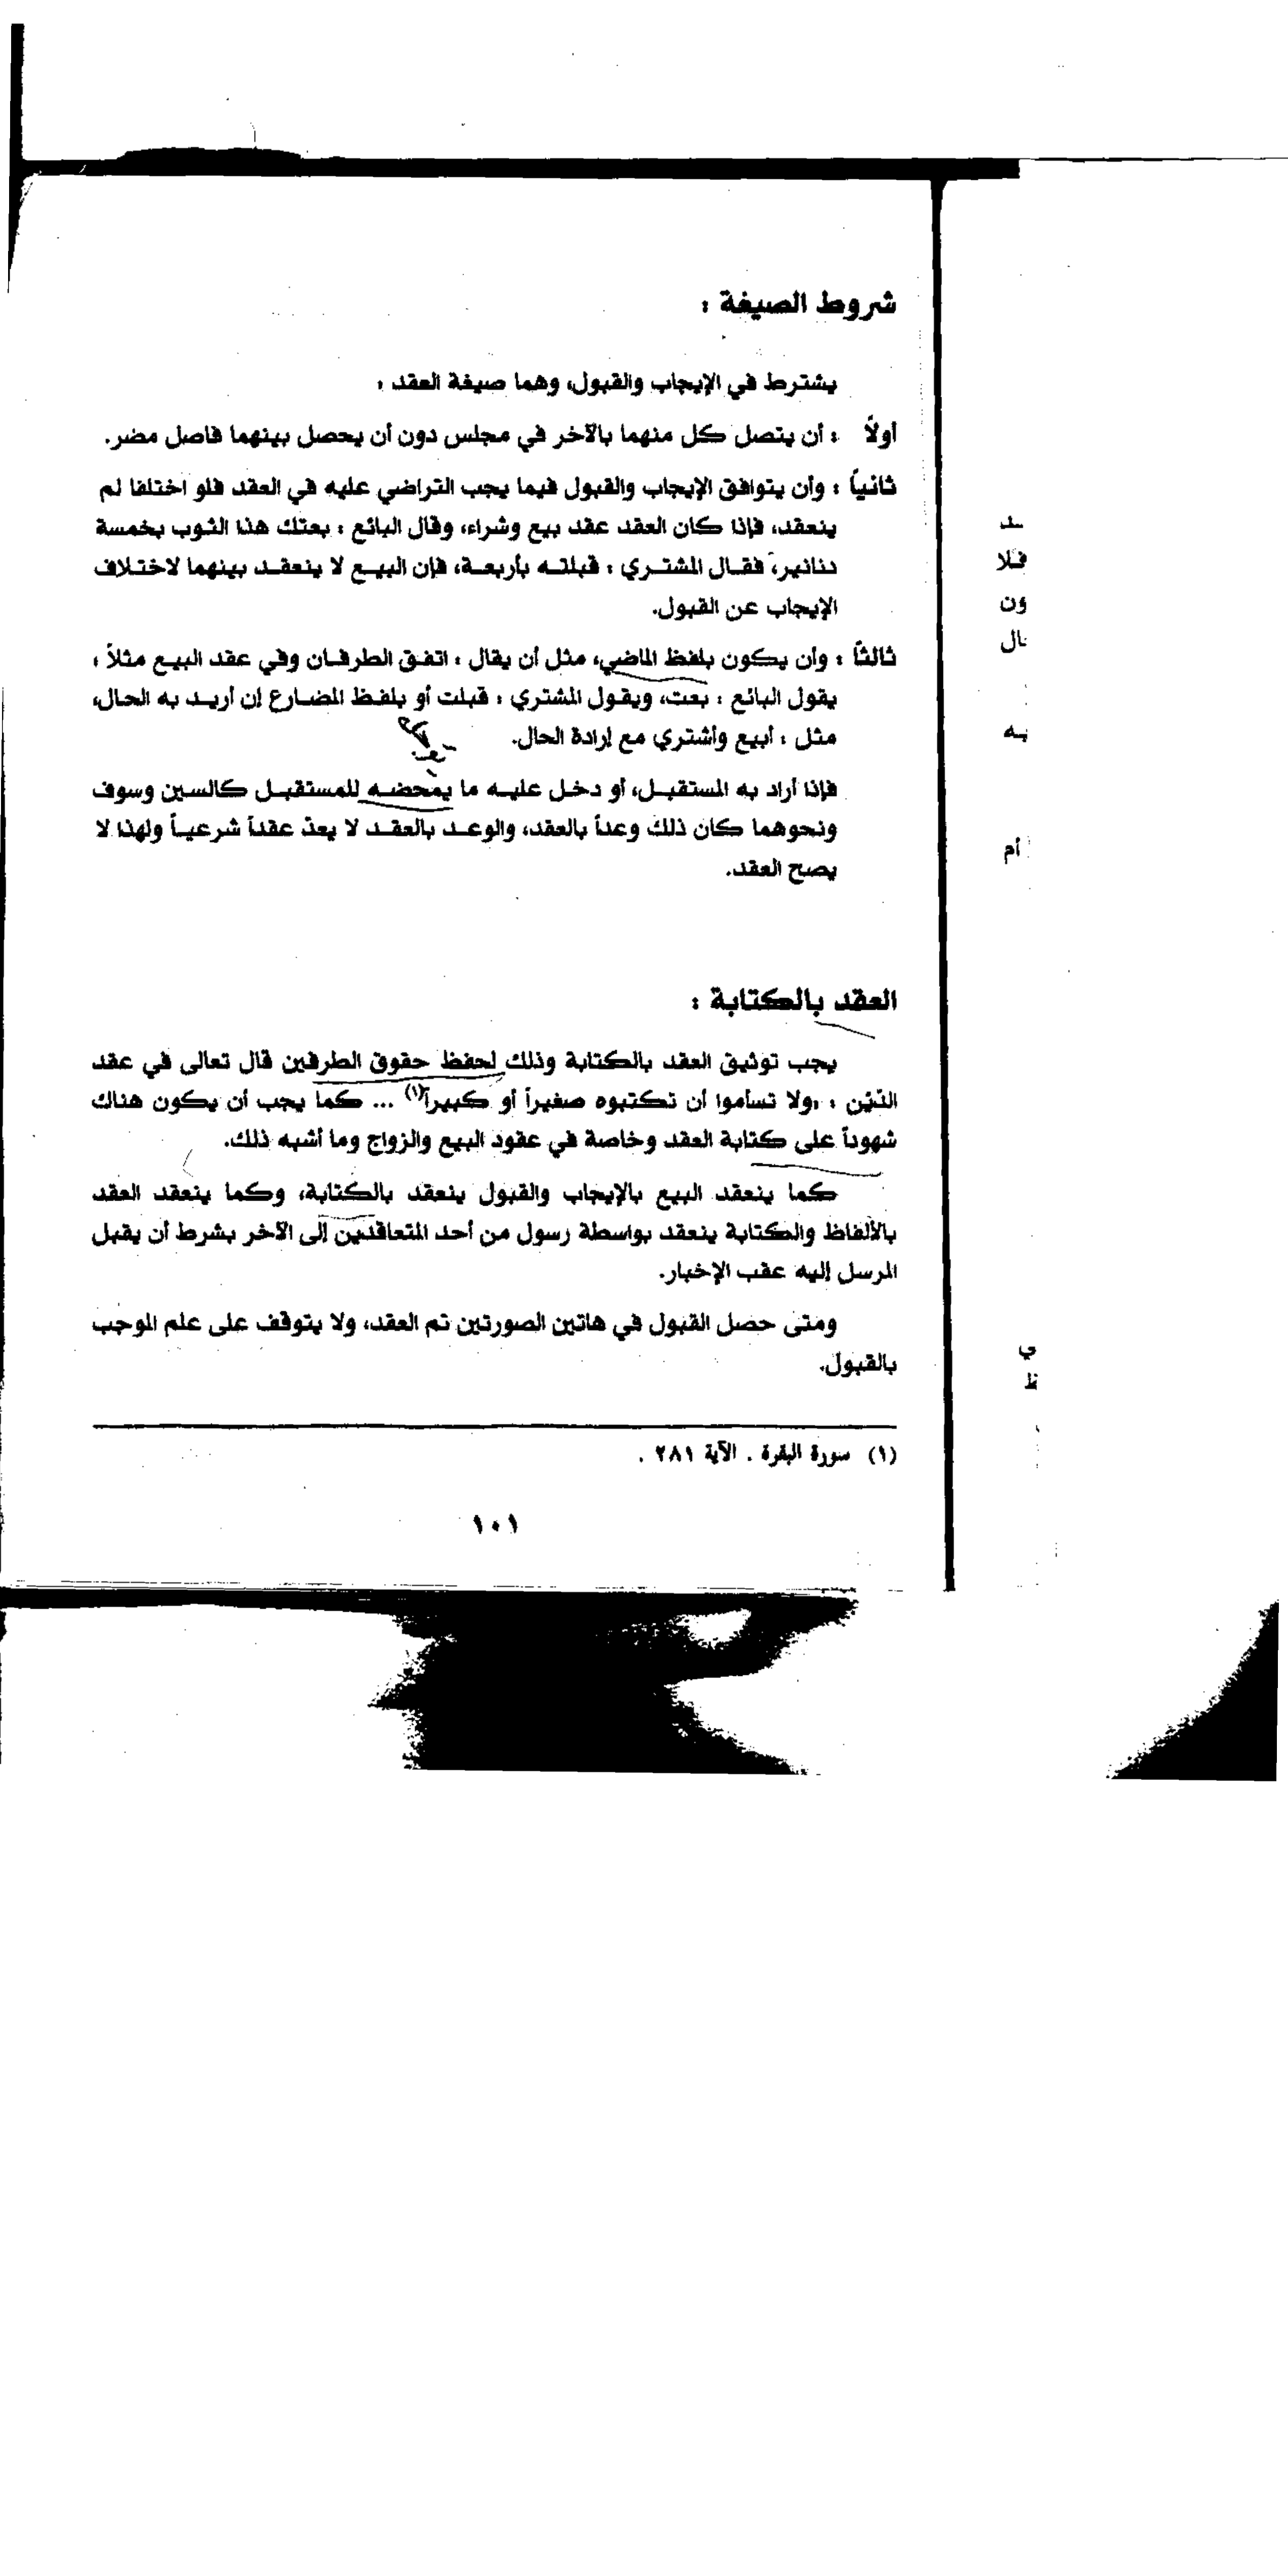 شروط الصيغة :
يشترط في الإيجاب والقبول، وهما صيغة العقد :
أولاً : أن يتصل كل منهما بالآخر في مجلس دون أن يحصل بينهما فاصل مضر.
ثانياً : وأن يتوافق الإيجاب والقبول فيما يجب التراضي عليه في العقد فلو اختلفا لم
ينعقد، فإذا كان العقد عقد بيع وشراء، وقال البائع : بعتك هذا الثوب بخمسة
دنانير، فقال المشتري : قبلته بأربعة، فإن البيع لا ينعقد بينهما لاختلاف
الإيجاب عن القبول.
ثالثاً : وأن يكون بلفظ الماضي، مثل أن يقال : اتفق الطرفان وفي عقد البيع مثلاً :
يقول البائع : بعت، ويقول المشتري : قبلت أو بلفظ المضارع إن أريد به الحال،
مثل : أبيع وأشتري مع إرادة الحال.
فإذا أراد به المستقبل، أو دخل عليه ما يمحضه للمستقبل كالسين وسوف
ونحوهما كان ذلك وعداً بالعقد، والوعد بالعقد لا يعدّ عقداً شرعياً ولهذا لا
يصح العقد.
العقد بالكتابة :
يجب توثيق العقد بالكتابة وذلك لحفظ حقوق الطرفين قال تعالى في عقد
الدّيْن : ،ولا تسأموا أن تكتبوه صغيراً أو كبيراً(١) ... كما يجب أن يكون هناك
شهوداً على كتابة العقد وخاصة في عقود البيع والزواج وما أشبه ذلك.
كما ينعقد البيع بالإيجاب والقبول ينعقد بالكتابة، وكما ينعقد العقد
بالألفاظ والكتابة ينعقد بواسطة رسول من أحد المتعاقدين إلى الآخر بشرط أن يقبل
المرسل إليه عقب الإخبار.
ومتى حصل القبول في هاتين الصورتين تم العقد، ولا يتوقف على علم الموجب
بالقبول.
(١) سورة البقرة . الآية ٢٨١ .
١٠١
فلا
ون
ال
به
أم
ي